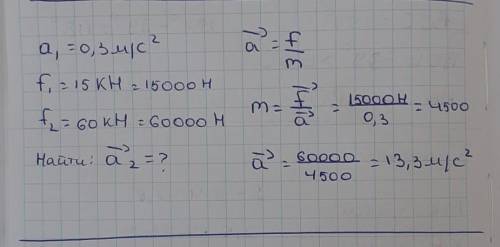 a₁ = 0,3 м/с²
f₁ = 15 КН = 15000 Н
f₂ = 60 кН = 60000 Н
Найти: a⃗₂ = ?
a⃗ = f/m
m = f⃗/a⃗ = 15000Н/0,3 = 4500
a⃗ = 60000/4500 = 13,3 м/с²